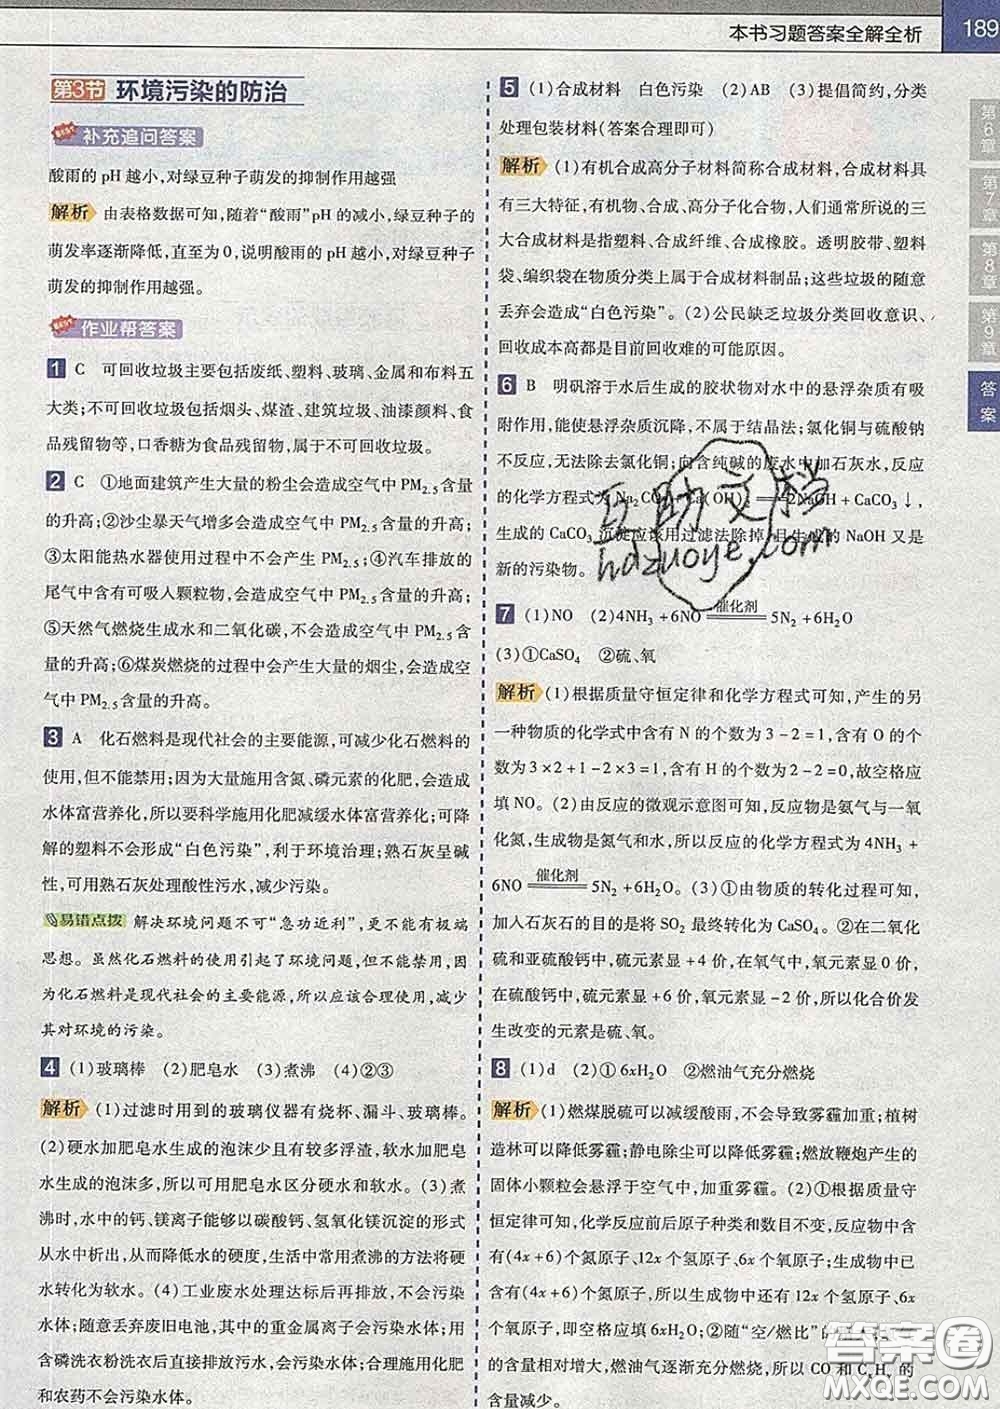 本书习题答案全解全析 189
第6章
第7章
第8章
第9章
答案
第3节 环境污染的防治
补充追问答案
酸雨的 pH 越小,对绿豆种子萌发的抑制作用越强
解析 由表格数据可知,随着“酸雨”pH 的减小,绿豆种子的
萌发率逐渐降低,直至为 0,说明酸雨 pH 越小,对绿豆种子
萌发的抑制作用越强。
作业帮答案
1 C 可回收垃圾主要包括废纸、塑料、玻璃、金属和布料五
大类;不可回收垃圾包括烟头、煤渣、建筑垃圾、油漆颜料、食
品残留物等,口香糖为食品残留物,属于不可回收垃圾。
2 C ①地面建筑产生大量的粉尘会造成空气中 PM2.5含量
的升高;②沙尘暴天气增多会造成空气中 PM2.5含量的升高;
③太阳能热水器使用过程中不会产生 PM2.5;④汽车排放的
尾气中含有大量的可吸入颗粒物,会造成 PM2.5含量的升高;
⑤天然气燃烧生成水和二氧化碳,不会造成空气中 PM2.5含量
的升高;⑥煤炭燃烧的过程中会产生大量的烟尘,会造成空
气中 PM2.5含量的升高。
3 A 化石燃料是现代社会的主要能源,可减少化石燃料的
使用,但不能禁用;因为大量施用含氮、磷元素的化肥,会造成
水体富营养化,所以要科学施用化肥减缓水体富营养化;可降
解的塑料不会形成“白色污染”,利于环境治理;熟石灰呈碱
性,可用熟石灰处理酸性污水,减少污染。
易错点拨 解决环境问题不可“急功近利”,更不能有极端
思想。虽然化石燃料的使用引起了环境问题,但不能禁用,因
为化石燃料是现代社会的主要能源,所以应该合理使用,减少
其对环境的污染。
4 (1)玻璃棒 (2)肥皂水 (3)煮沸 (4)②③
解析 (1)过滤时用到的玻璃仪器有烧杯、漏斗、玻璃棒。
(2)硬水加肥皂水生成的泡沫少且有较多浮渣,软水加肥皂
水生成的泡沫多,所以可用肥皂水区分硬水和软水。(3)煮
沸时,水中的钙、镁离子能够以碳酸钙、氢氧化镁沉淀的形式
从水中析出,从而降低水的硬度,生活中常用煮沸的方法将硬
水转化为软水。(4)工业废水处理达标后再排放,不会污染
水体;随意丢弃废旧电池,其中的重金属离子会污染水体;使用
含磷洗衣粉洗衣后直接排放污水,会污染水体;合理施用化肥
和农药不会污染水体。
5 (1)合成材料 白色污染 (2)AB (3)提倡简约,分类
处理包装材料(答案合理即可)
解析 (1)有机合成高分子材料简称合成材料,合成材料具
有三大特征,有机物、合成、高分子化合物,人们通常所说的三
大合成材料是指塑料、合成纤维、合成橡胶。透明胶带、塑料
袋、编织袋在物质分类上属于合成材料制品;这些垃圾的随意
丢弃会造成“白色污染”。(2)公民缺乏垃圾分类回收意识、
回收成本高都是目前回收难的可能原因。
6 B 明矾溶于水后生成的胶状物对水中的悬浮杂质有吸
附作用,能使悬浮杂质沉降,不属于结晶法;氯化铜与硫酸钠
不反应,无法除去氯化铜;向含纯碱的废水中加石灰水,反应
的化学方程式为 Na2CO3+Ca(OH)2══2NaOH+CaCO3↓,
生成的 CaCO3沉淀应该用过滤法除掉,且生成的 NaOH 又是
新的污染物。
7 (1)NO (2)4NH3+6NO 催化剂══ 5N2+6H2O
(3)①CaSO4 ②硫、氧
解析 (1)根据质量守恒定律和化学方程式可知,产生的另
一种物质的化学式中含有 N 的个数为 3-2=1,含有 O 的个
数为 3×2+1-2×3=1,含有 H 的个数为 2-2=0,故空格应
填 NO。(2)由反应的微观示意图可知,反应物是氨气与一氧
化氮,生成物是氮气和水,所以反应的化学方程式为 4NH3+
6NO 催化剂══ 5N2+6H2O。(3)①由物质的转化过程可知,
加入石灰石的目的是将 SO2 最终转化为 CaSO4。②在二氧化
硫和亚硫酸钙中,硫元素显+4 价,在氧气中,氧元素显 0 价,
在硫酸钙中,硫元素显+6 价,氧元素显-2 价,所以化合价发
生改变的元素是硫、氧。
8 (1)d (2)①6xH2O ②燃油气充分燃烧
解析 (1)燃煤脱硫可以减缓酸雨,不会导致雾霾加重;植树
造林可以降低雾霾;静电除尘可以降低雾霾;燃放鞭炮产生的
固体小颗粒会悬浮于空气中,加重雾霾。(2)①根据质量守
恒定律可知,化学反应前后原子种类和数目不变,反应物中含
有(4x+6)个氮原子、12x 个氢原子、6x 个氧原子;生成物中已
含有(4x+6)个氮原子,所以生成物中还有 12x 个氢原子、6x
个氧原子,即空格应填 6xH2O;②随“空/燃比”的
的含量相对增大,燃油气逐渐充分燃烧,所以 CO 和 CxHy 的
含量减少。
互助文档
hdzuoye.com
答案圈
MXQE.COM